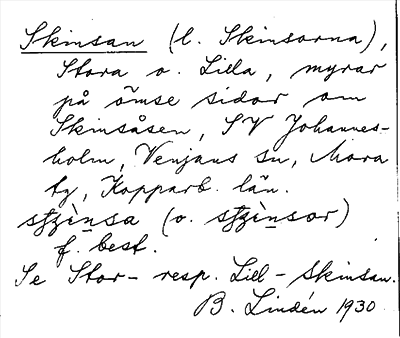 Skinsan (l. Skinsorna),
Stora o. Lilla, myrar
på ömse sidor om
Skinsåsen, SV Johannes-
holm, Venjans sn, Mora
tg, Kopparb. län.
(o.
f. best.
Se Stor- resp. Lill-Skinsan.
B. Lindén 1930